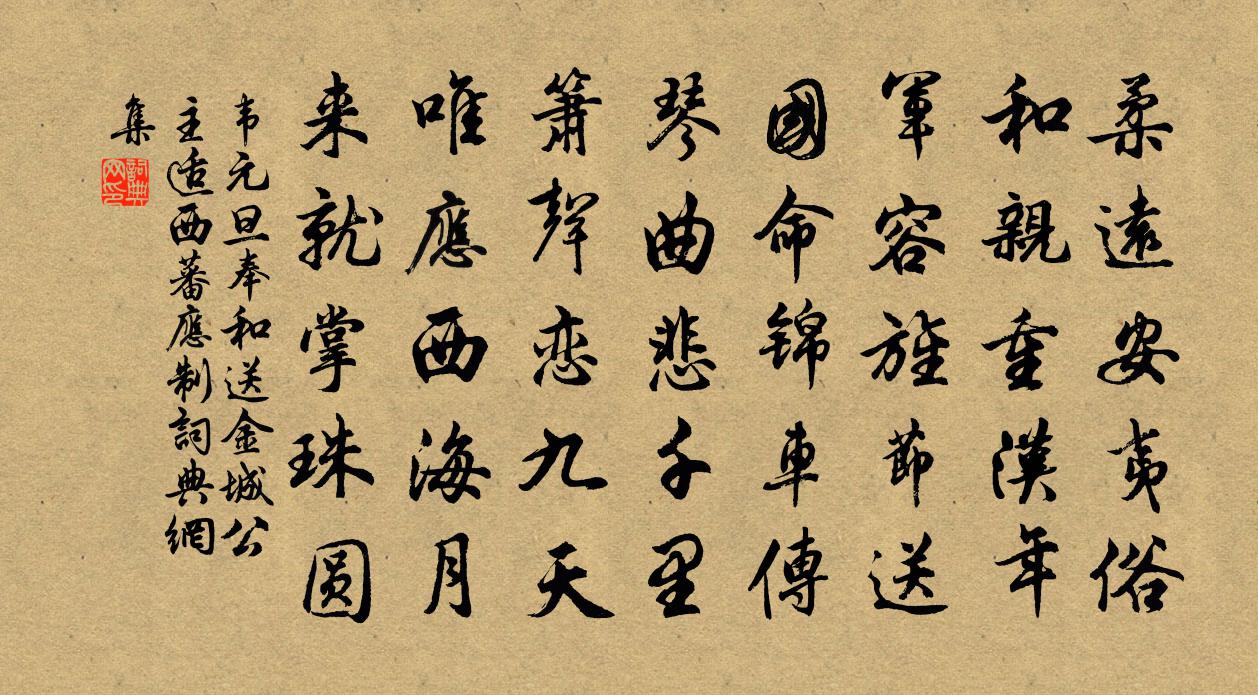 柔遠安夷俗
和親重漢年
軍容旌節送
國命锦車傳
琴曲悲千里
簫聲恋九天
唯應西海月
来就掌珠圆
韦元旦奉和送金城公
主适西蕃應制詞典網
集
詞典
网印